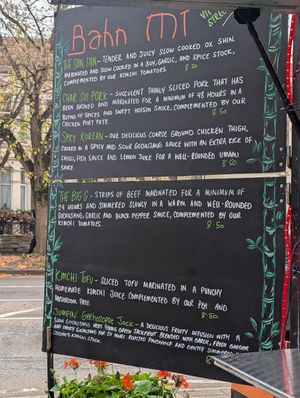 Bahn Mi
VI
STREE
THE SUN SHIN - TENDER AND JUICY SLOW COOKED OX SHIN.
MARINATED AND SLOW COOKED IN A SOY, GARLIC, AND SPICE STOCK,
COMPLEMENTED BY OUR KIMCHI TOMATOES. 8.50
CHAR SUI PORK - SUCCULENT THINLY SLICED PORK THAT HAS
BEEN BRINED AND MARINATED FOR A MINIMUM OF 48 HOURS IN A
BLEND OF SPICES AND SWEET HOISIN SAUCE, COMPLEMENTED BY OUR
CHICKEN PORT PATE. 8.50
SPICY KOREAN - OUR DELICIOUS COARSE GROUND CHICKEN THIGH,
COOKED IN A SPICY AND SOUR GOCHUJANG SAUCE WITH AN EXTRA KICK OF
CHILLI, FISH SAUCE AND LEMON JUICE FOR A WELL-ROUNDED UMAMI
SAUCE 8.50
THE BIG G - STRIPS OF BEEF MARINATED FOR A MINIMUM OF
24 HOURS AND SIMMERED SLOWLY IN A WARM AND WELL-ROUNDED
GOCHUJANG, GARLIC AND BLACK PEPPER SAUCE, COMPLEMENTED BY OUR
KIMCHI TOMATOES 8.50
KIMCHI TOFU - SLICED TOFU MARINATED IN A PUNCHY
HOMEMADE KIMCHI JUICE COMPLEMENTED BY OUR PEA AND
MUSHROOM PATE 8.50
JUMPIN' JACK - A DELICIOUS FRUITY INFUSION WITH A
YOUNG GREEN JACKFRUIT BLENDED WITH GARLIC, FRESH GINGER
AND
8